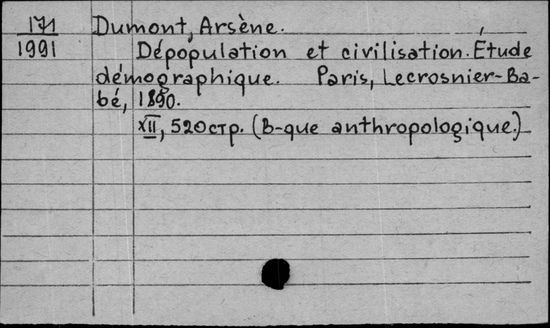 171 Dumont, Arsène.
1991 Dépopulation et civilisation. Étude
démographique. Paris, Lecrosnier-Ba-
bé, 1890.
XII, 520стр. (B-que anthropologique.)